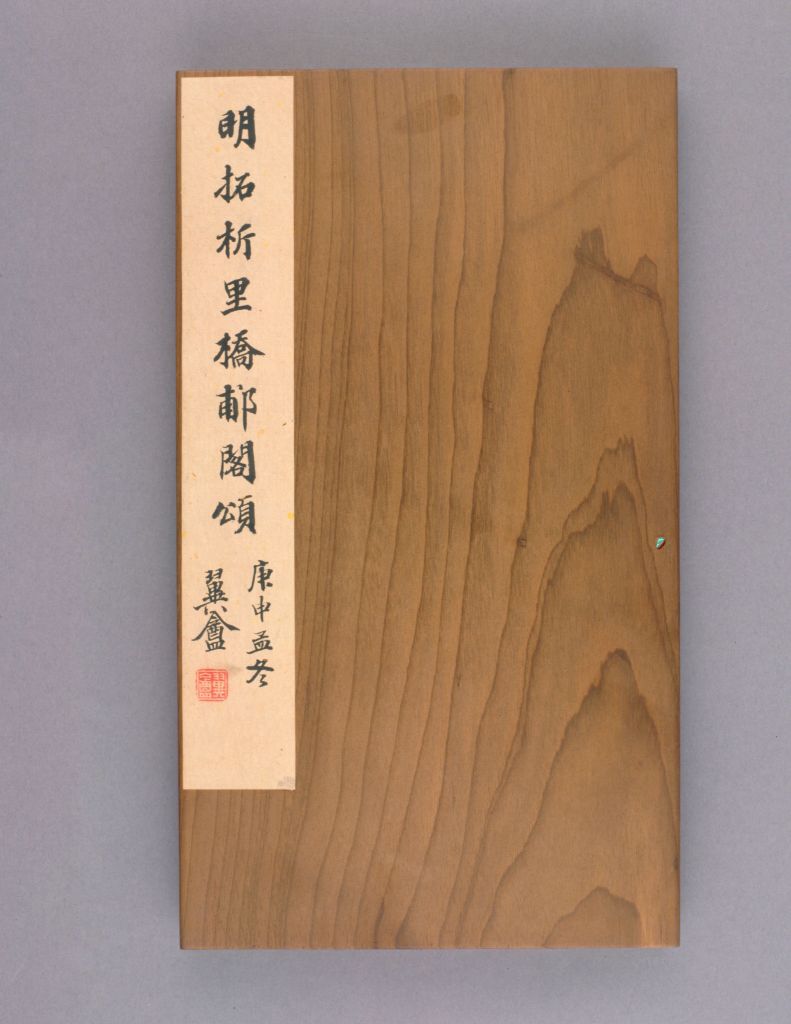 明拓析里橋郙閣頌
庚申孟冬
翼盦
翼盦